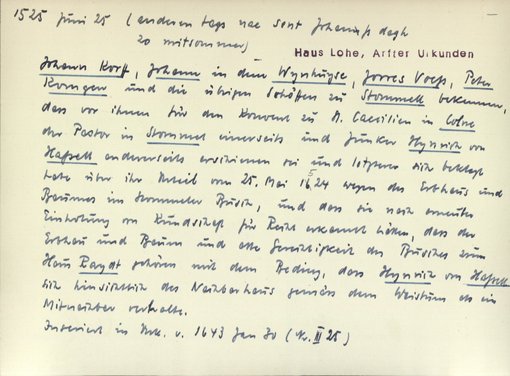 1525 Juni 25 (anderen tags nae sent Johanniß dagh
zo mitsommer)
Haus Lohe, Arfter Urkunden
Johann Korff, Johann in dem Wynhuyse, Jorres Voeß, Peter
und die übrigen Schöffen zu Stommell bekennen,
dass vor ihnen für den Konvent zu St. Caecilien in Colne
der Pastor in Stommel einerseits und Junker Hynrich von
Hassell andererseits erschienen sei und letzterer sich beklagt
habe über ihr Urteil vom 25. Mai 1524 wegen des Erbhaus und
Baumes im Stommeler Busch, und dass sie nach erneuter
Einholung von Kundschaft für Recht erkannt hätten, dass der
Erbhau und Baum und alle Gerechtigkeit des Busches zum
Haus Raydt gehören mit dem Beding, dass Hynrich von Hassell
sich hinsichtlich des gemäss dem Weistum als ein
Miterbe verhalte.
Inseriert in Urk. v. 1643 Jan 30 (Nr. III 25)